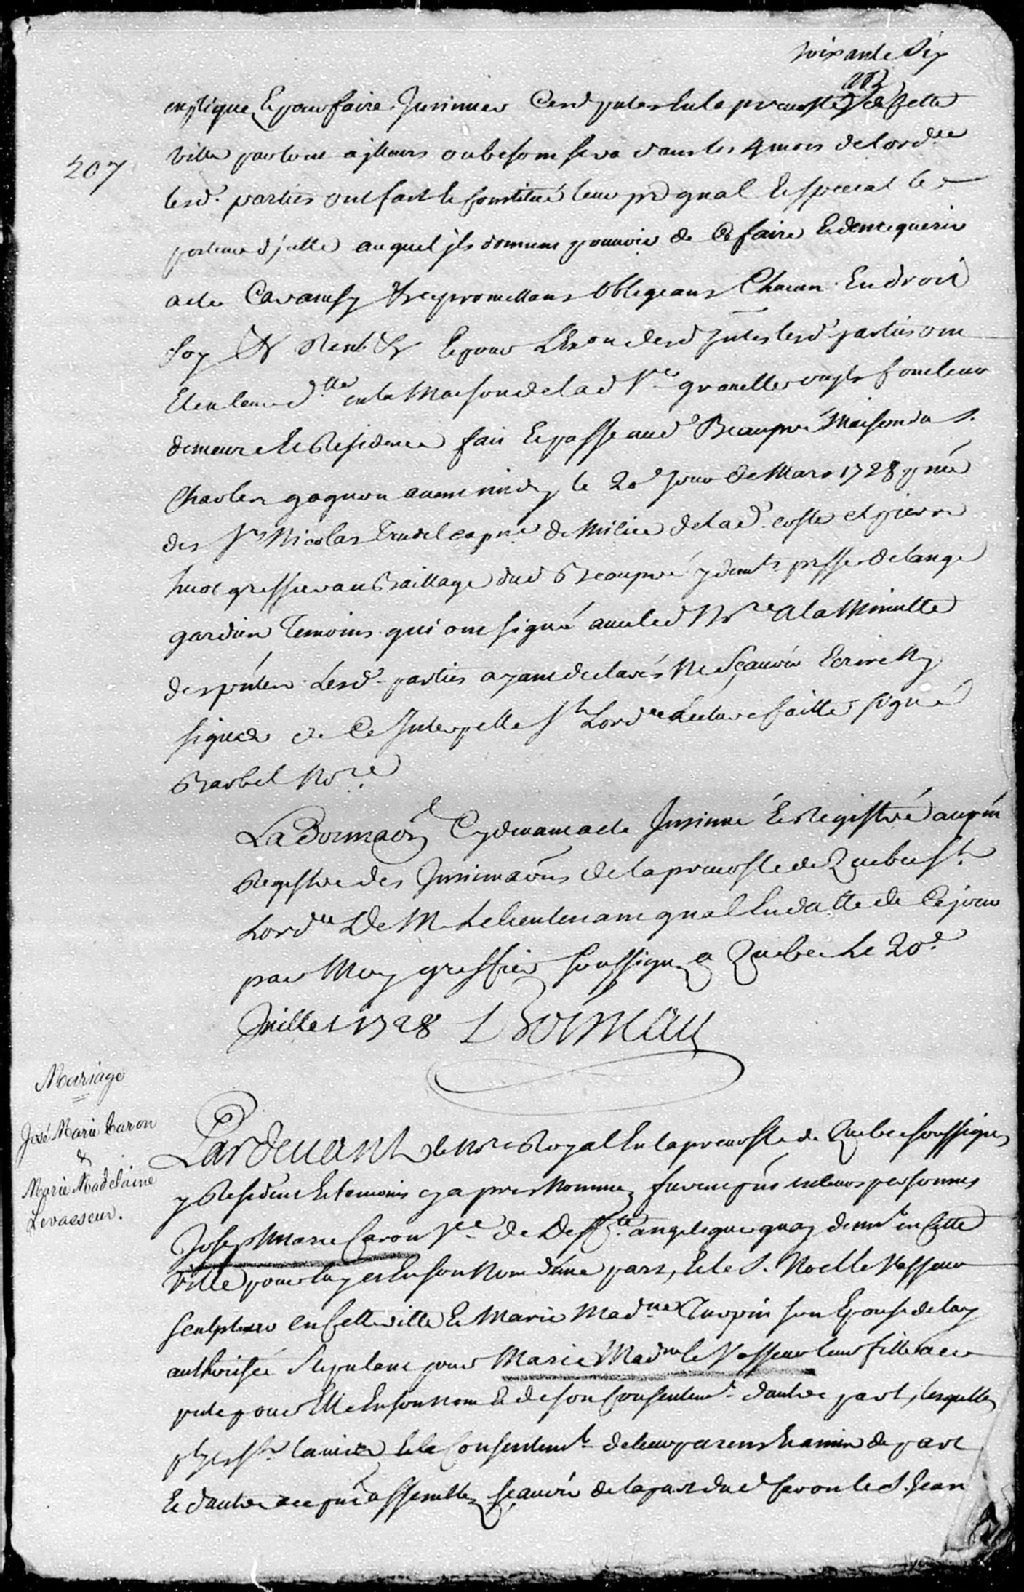 soixante dix
expliqué Et pour faire Insinuer Cesd. pntes En la prevosté de Cette
207
ville partout ailleurs ou besoin sera dans les 4 mois de lord.ce
lesd. parties ont fait Et Constitué leur pr gnal Et special le
porteur d'jcelle auquel jls donnent pouvoir de Ce faire Et den requerir
acte Car ainsy &c promettans Obligeans Chacun En droit
soy &c Renl &c Et pour L'Exon desd jntes lesd parties ont
Eleu leur d.lle en la Maison de lad V.ve
demeure Et Residence fait Et passé aud Beaupré Maison du S.
Charles gagnon avant midy le 20.e jour de Mars 1728 pnce
des S.rs Nicolas Trudel capne de Milice de lad. coste et pierre
huot greffier au Baillage dud Beaupré y demt psse de lange
gardien Temoins qui ont signé avec led N.re a la Minutte
des pntes Lesd. parties ayant declarés Ne Scavoir Ecrire Ny
signer de Ce Interpellé s.t Lord.ce Lecture faitte signé
Barbel No.re
La Donnaon Cy devant a Esté Insinué Et Registré au pnt
Registre des Insinuaons de la prevosté de Quebec s.t
Lord.ce De M. Le Lieutenant gnal En datte de Ce jour
par Moy greffier soussigné a Quebec Le 20.e
Juillet 1728 Boisseau
Mariage
José Marie Caron
&
Marie Madelaine
Levasseur.
Pardevant le No.re Royal En la prevosté de Quebec soussigné
y Resident Et temoins cy apres Nommez furent pns en leurs personnes
Joseph Marie Caron de Deff.te angelique demt en Cette
ville pour luy et En son Nom d'une part, Et le S. Noel le Vasseur
sculpteur en Cette ville Et Marie Mad.ne Turpin son Epouse de luy
authorisée Stipulant pour Marie Mad.ne le Vasseur leur fille a ce
pnte pour Elle En son nom Et de son Consentemt. d'autre part, lesquelles
parties de l'avis Et le Consentemt. de leur parens Et amis de part
Et d'autre a ce pns assemblez sçavoir de la part dud Caron le S. Jean